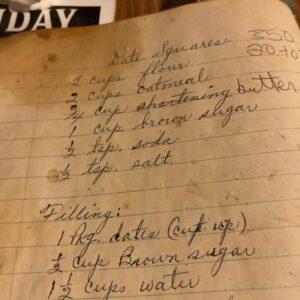 DAY
Date Squares.
350
20 to
2 cups flour
2 cups oatmeal
3/4 cup shortening butter
1 cup brown sugar
1/2 tsp. soda
1/2 tsp. salt.
Filling:
1 Pkg. dates (cut up)
1/2 cup Brown sugar
1 1/2 cups water